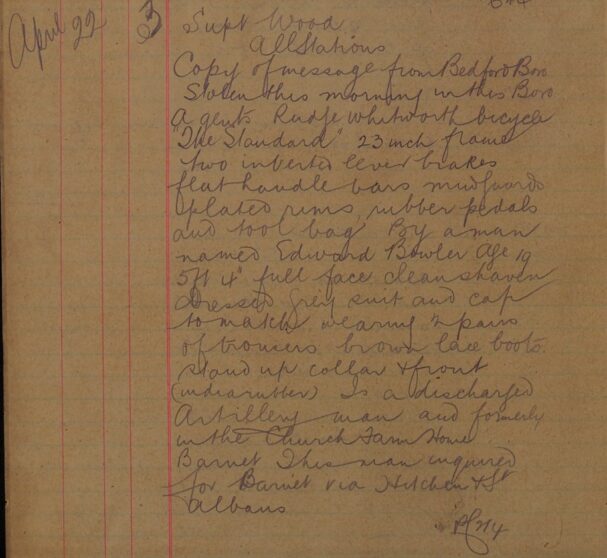 April 22
3
Supt Wood
All Stations
Copy of message from Bedford Boro
Stolen this morning in this Boro
a gents Rudge Whitworth bicycle
"The Standard" 23 inch frame
two inverted lever brakes
flat handle bars mudguards
plated rims, rubber pedals
and tool bag By a man
named Edward Bowler age 19
5ft 4" full face clean shaven
dressed grey suit and cap
to match, wearing 2 pairs
of trousers brown lace boots
stand up collar & front
(indiarubber) Is a discharged
Artillery man and formerly
in the Church Farm Home
Barnet This man inquired
for Barnet via Hitchin & St
Albans